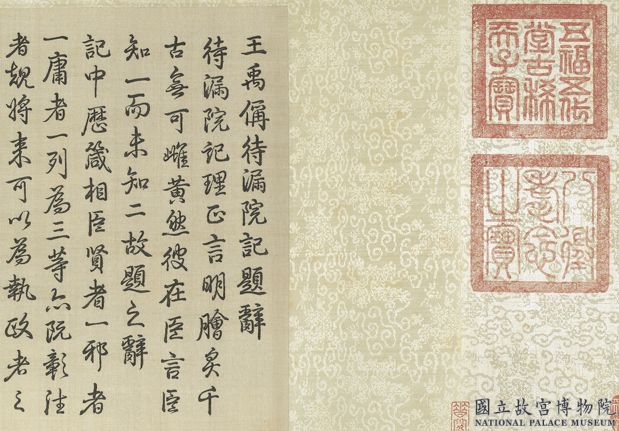 五福五代
堂古稀
天子寶
八徵
耄念
之寶
王禹偁待漏院記題辭
待漏院記理正言明膾炙千
古無可雌黃然彼在臣言臣
知一而未知二故題之辭
記中歷箴相臣賢者一邪者
一庸者一列為三等亦既彰往
者將來可以為執政者之
國立故宮博物院
NATIONAL PALACE MUSEUM